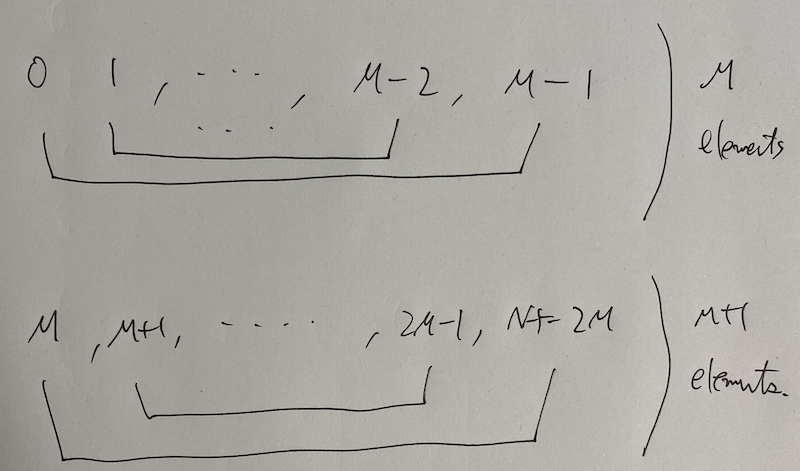 0 1 , ... , M-2, M-1
...
M
elements
M , M+1, .... , 2M-1, N-1=2M
M+1
elements.